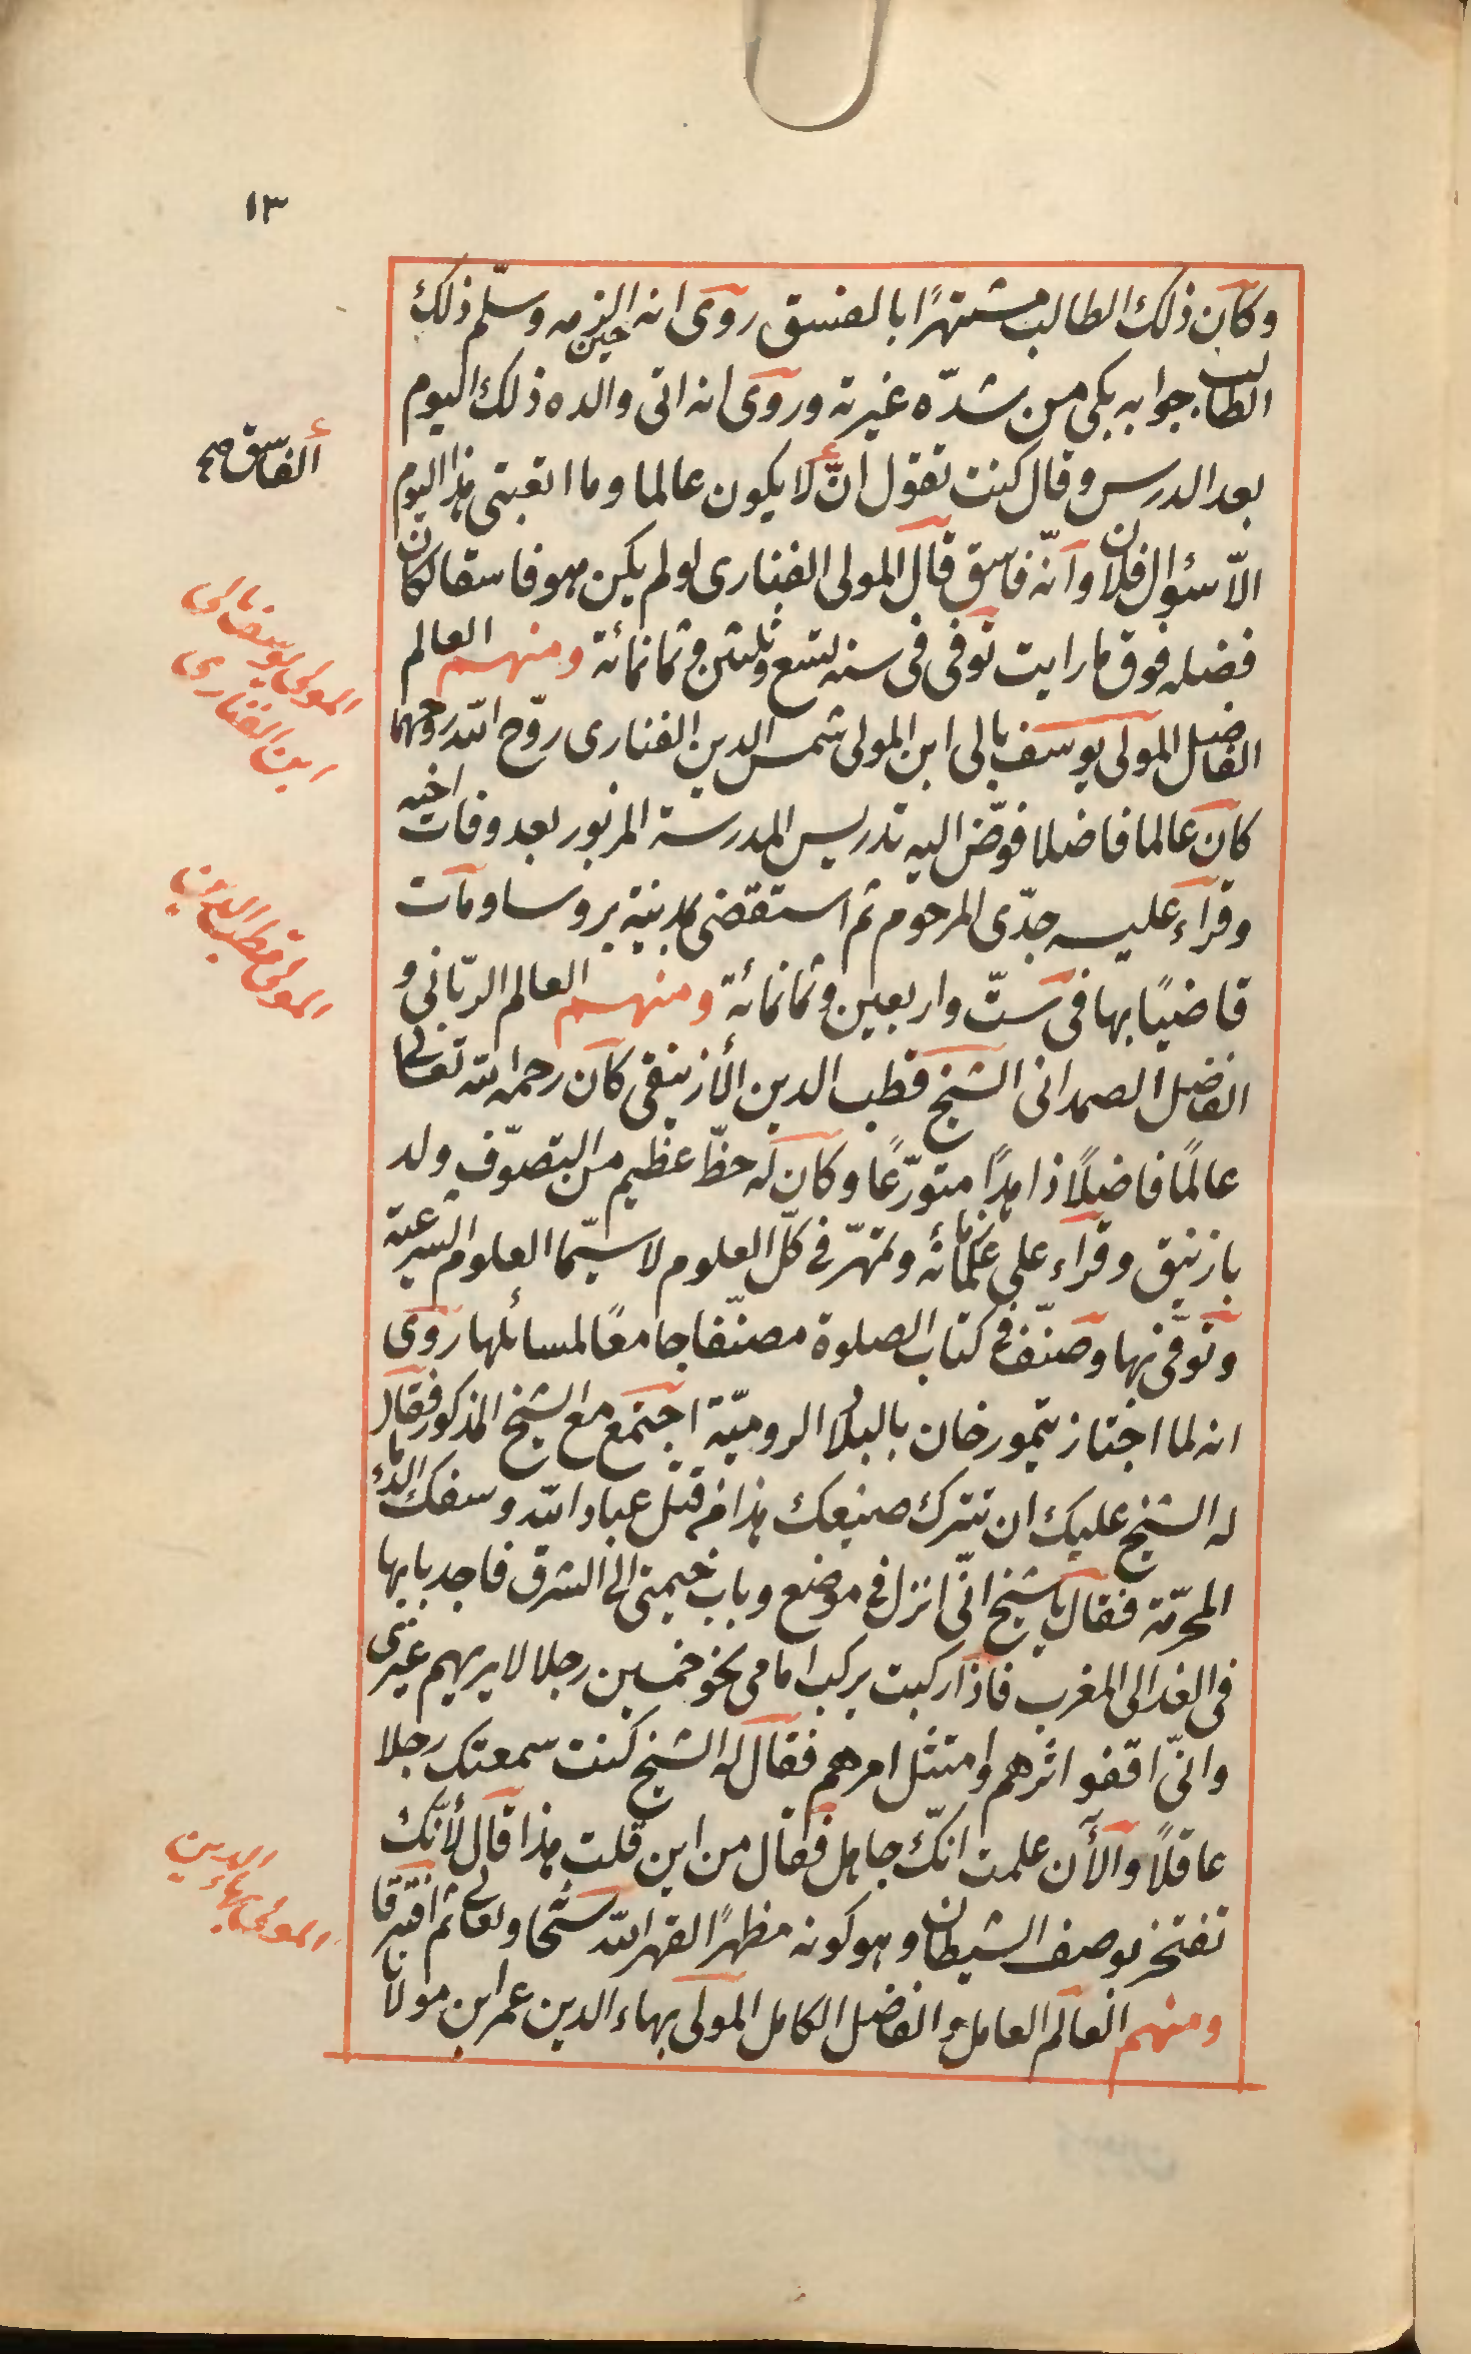 ١٣
وكان ذلك الطالب مشتهرًا بالفسق روى انه حين الزمه وسلّم ذلك
الطالب جوابه بكى من شدّه غيرته وروى انه اتى والده ذلك اليوم
بعد الدرس وقال كنت تقول انّ لا يكون عالما وما اتعبتى هذا اليوم
ألفاسق صح
الاّ سؤال فلان وانّه فاسق قال المولى الفنارى لو لم يكن هو فاسقا لكان
فضله فوق ما رايت توفى فى سنه تسع وثلثين وثمانمائة ومنهم العالم
المولى يوسف بالى
ابن الفنارى
الفاضل المولى يوسف بالى ابن المولى شمس الدين الفنارى روّح الله روحهما
كان عالما فاضلا فوّض اليه تدريس المدرسة المزبور بعد وفات اخيه
وقرآء عليه جدّى المرحوم ثم استقضى بمدينة بروسا ومات
المولى قطب الدين
قاضيًا بها فى ستّ واربعين وثمانمائة ومنهم العالم الربّانى و
الفاضل الصمدانى الشيخ قطب الدين الأزنيقى كان رحمه الله تعالى
عالمًا فاضلًا زاهدًا متورّعًا وكان له حظّ عظيم من التصوّف ولد
بازنيق وقرآء على علمائه وتمهّر فى كلّ العلوم لاسيّما العلوم الشرعية
وتوفّى بها وصنّف فى كتاب الصلوة مصنّفا جامعًا لمسائلها روى
انه لما اجتاز تيمور خان بالبلاد الروميّة اجتمع مع الشيخ المذكور فقال
له الشيخ عليك ان تترك صنيعك هذا من قتل عباد الله وسفك الدماء
المحرّمة فقال يا شيخ انّى انزل فى موضع وباب خيمتى الى الشرق فاجد بابها
فى الغد الى المغرب فاذا ركبت يركب امامى نحو خمسين رجلا لا يريهم غيرى
وانّى اقفو اثرهم وامتثل امرهم فقال له الشيخ كنت سمعتك رجلا
عاقلًا والأن علمت انّك جاهل فقال من اين قلت هذا قال لأنّك
المولى بهاء الدين
تفتخر بوصف الشيطان وهو كونه مظهرًا لقهر الله سبحانه وتعالى ثم افترقا
ومنهم العالم العامل والفاضل الكامل المولى بهاء الدين عمر ابن مولانا